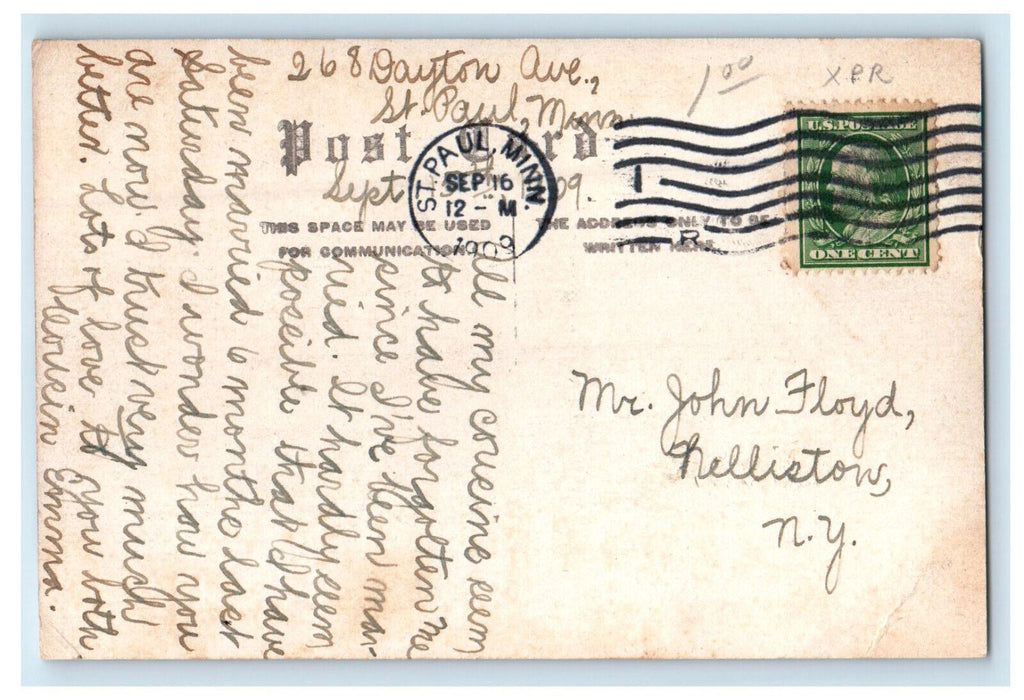 268 Dayton Ave.,
St. Paul, Minn.
Post Card
Sept. 09.
THIS SPACE MAY BE USED
FOR COMMUNICATION
THE ADDRESS ONLY TO BE
WRITTEN HERE
All my cousins seem
to have forgotten me
since I've been mar-
ried. It hardly seems
possible that I have
been married 6 months last
Saturday. I wonder how you
are now. I trust very much
better. Lots of love to you both
Cousin Emma.
1 00
XPR
ST. PAUL, MINN.
SEP 16
12 - M
1909
1
R
U.S. POSTAGE
ONE CENT
Mr. John Floyd,
Nelliston,
N.Y.